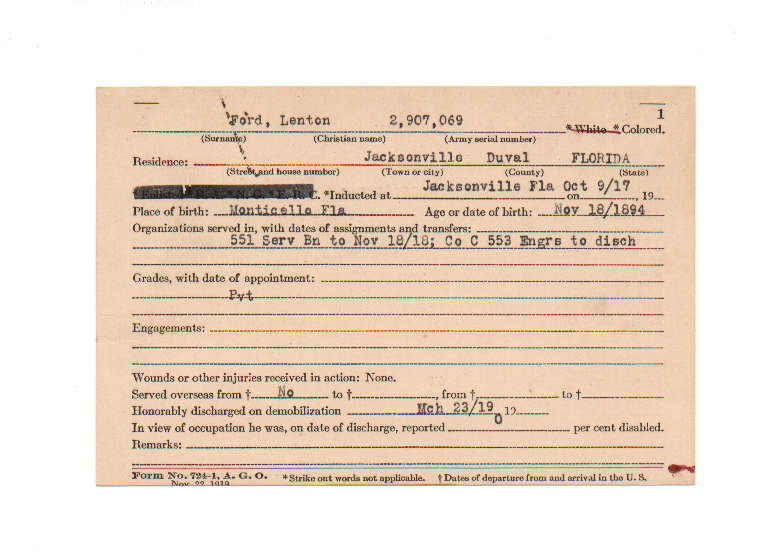 1
Ford, Lenton 2,907,069 *White *Colored.
(Surname) (Christian name) (Army serial number)
Residence: Jacksonville Duval FLORIDA
(Street and house number) (Town or city) (County) (State)
Jacksonville Fla Oct 9/17
*Enlisted R. A. *N. G. *E. R. C. *Inducted at on , 19
Place of birth: Monticello Fla Age or date of birth: Nov 18/1894
Organizations served in, with dates of assignments and transfers:
551 Serv Bn to Nov 18/18; Co C 553 Engrs to disch
Grades, with date of appointment:
Pvt
Engagements:
Wounds or other injuries received in action: None.
Served overseas from † No to †, from † to †
Honorably discharged on demobilization Mch 23/19, 19
0
In view of occupation he was, on date of discharge, reported per cent disabled.
Remarks:
Form No. 724-1, A. G. O. *Strike out words not applicable. † Dates of departure from and arrival in the U. S.
Nov. 22, 1919